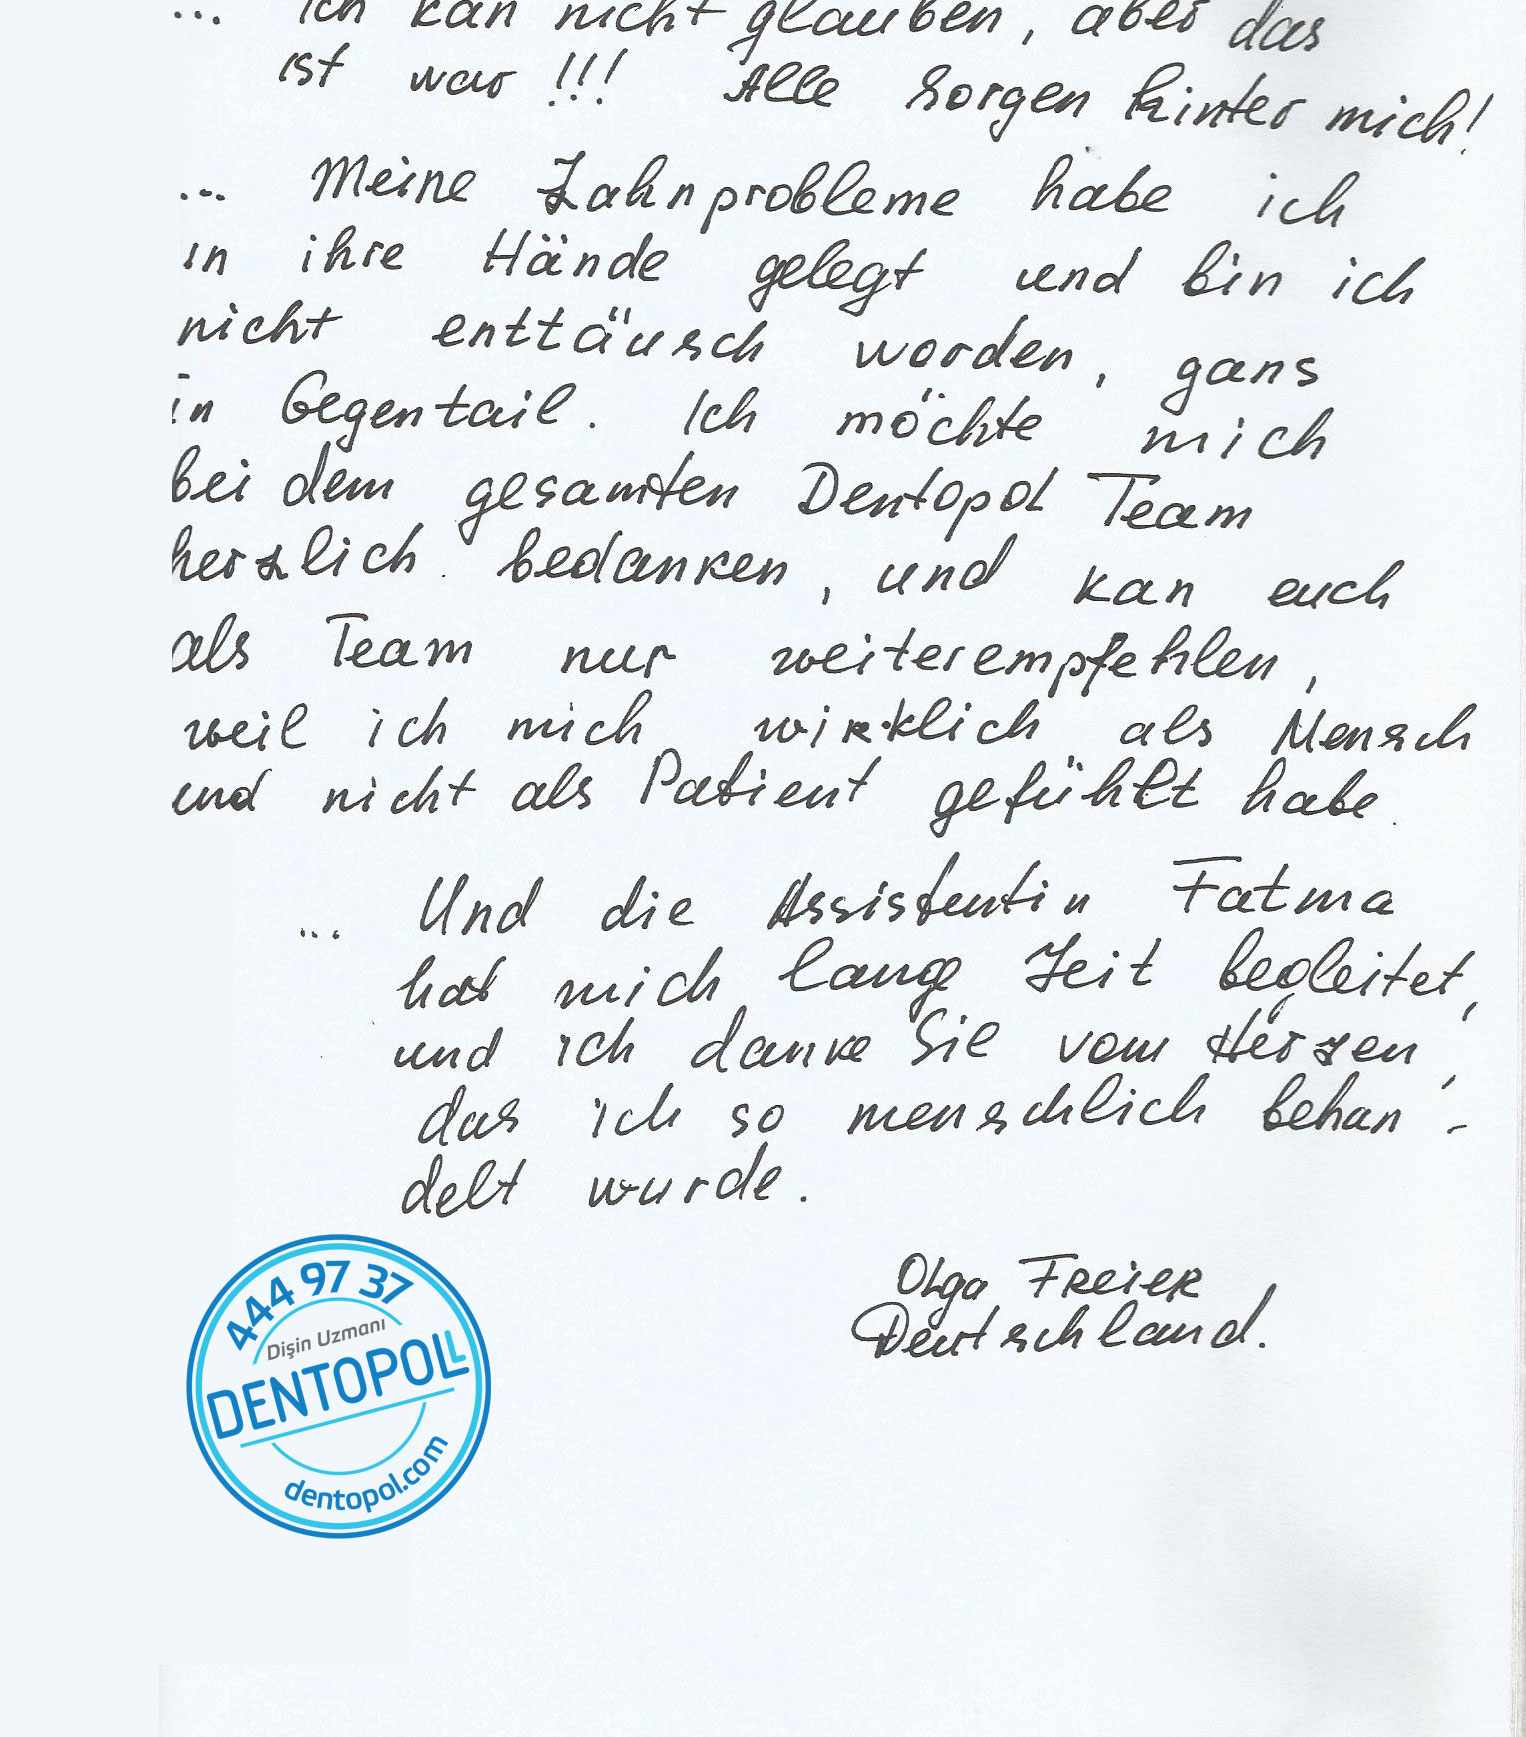 ... ich kan nicht glauben, aber das
ist war !!! Alle Sorgen hinter mich!
... Meine Zahnprobleme habe ich
in ihre Hände gelegt und bin ich
nicht enttäusch worden, gans
in Gegentail. Ich möchte mich
bei dem gesamten Dentopol Team
herzlich bedanken, und kan euch
als Team nur weiterempfehlen,
weil ich mich wirklich als Mensch
und nicht als Patient gefühlt habe.
... Und die Assistentin Fatma
hat mich lange Zeit begleitet,
und ich danke Sie vom Herzen,
das ich so menschlich behan-
delt wurde.
Olga Freier
Deutschland.
444 97 37
Dişin Uzmanı
DENTOPOL
dentopol.com